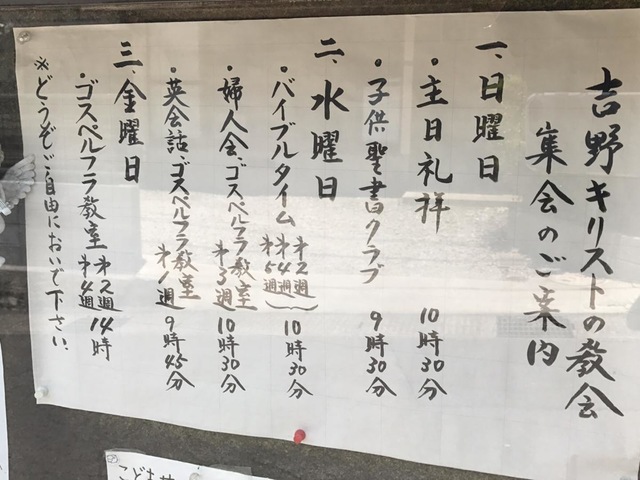 吉野キリストの教会
集会のご案内
一、日曜日
・主日礼祥 10時30分
・子供聖書クラブ 9時30分
二、水曜日
・バイブルタイム 才2週 才4週 才5週 10時30分
・婦人会、ゴスペルフラ教室 才3週 10時30分
・英会話、ゴスペルフラ教室 才1週 9時45分
三、金曜日
・ゴスペルフラ教室 才2週 才4週 14時
※どうぞご自由においで下さい。
こども